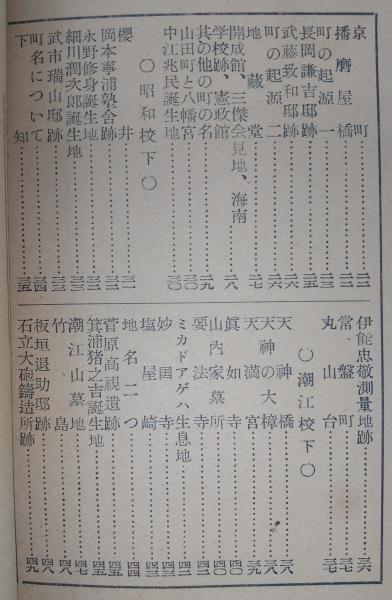 京町……二二
播磨屋橋……二三
町の起源一……二三
長岡謙吉邸跡……二五
武藤致和邸跡……二六
町の起源二……二六
地藏堂……二七
開成館、三傑会見地、海南
学校跡、憲政館……二八
其の他の町の名……二九
山田町と八幡宮……三〇
中江兆民誕生地……三〇
〇昭和校下〇
櫻井……三一
岡本寧浦塾舎跡……三二
永野修身誕生地……三二
細川潤次郎誕生地……三三
武市瑞山邸跡……三三
町名について……三四
下知……三五
伊能忠敬測量地跡……三六
常盤町……三七
丸山台……三七
〇潮江校下〇
天神橋……三八
天神の大樟……三八
天満宮……三九
眞如寺……四〇
山内家墓所……四〇
要法寺……四一
ミカドアゲハ生息地……四二
妙国寺……四二
塩屋崎……四三
地名二つ……四四
菅原高視遺跡……四四
箕浦猪之吉誕生地……四五
潮江山墓地……四七
竹島……四八
板垣退助邸跡……四八
石立大砲鋳造所跡……四九